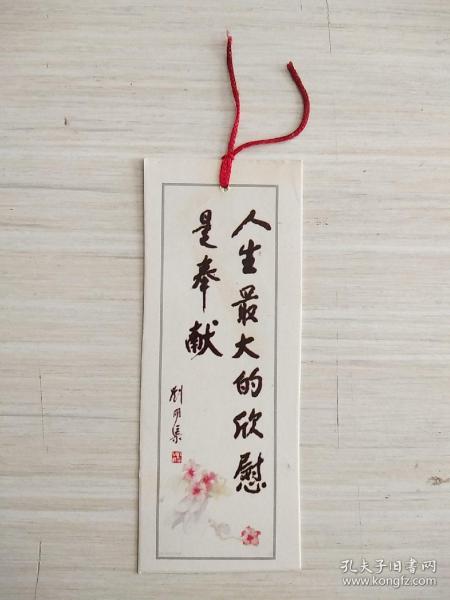 人生最大的欣慰
是奉献
孔夫子旧书网
www.kongfz.com